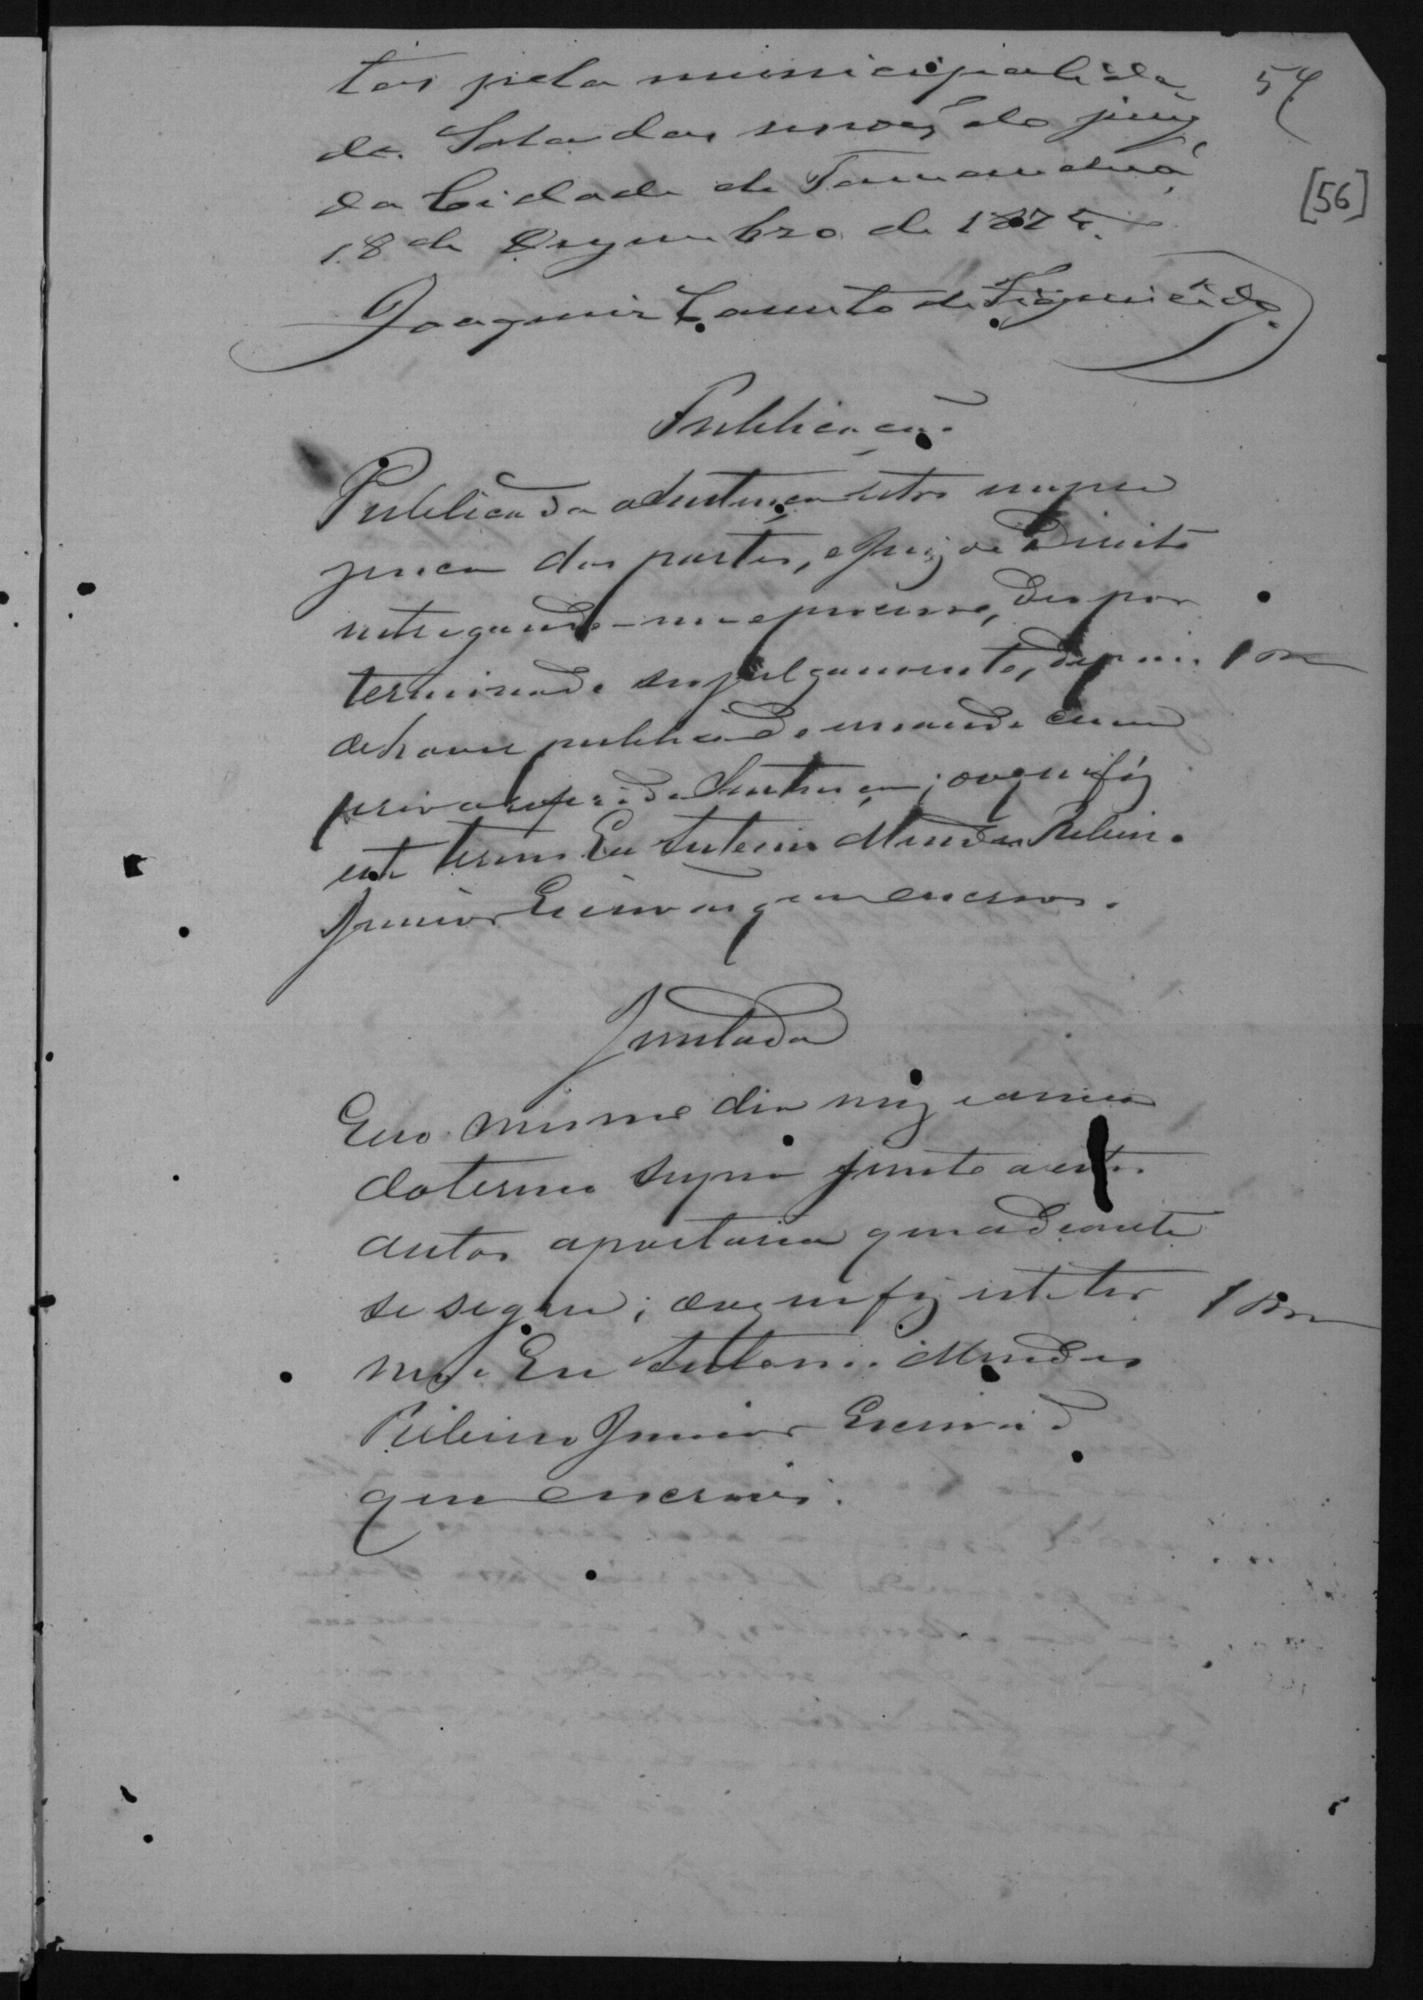 54
[56]
tas pela municipalida
de. Sala das sessões do jury
da Cidade de Tamanduá
18 de Dezembro de 187
Joaquim Camito de Figueiredo.
Publicação
Publicada a sentença retro na pre
sença das partes, e Juiz de Direito
entregando-me o processo, deo por
terminado o julgamento, depois
de haver publicado
sentença; do que fiz
este termo Eu Antonio Mendes Ribeiro
Junior Escrivão que escrevi.
Juntada
E no mismo dia mez e anno
do termo supra junto a estes
autos a portaria que adeante
se segue; do que fiz este ter
mo. Eu Antonio Mendes
Ribeiro Junior Escrivão
que escrevi.